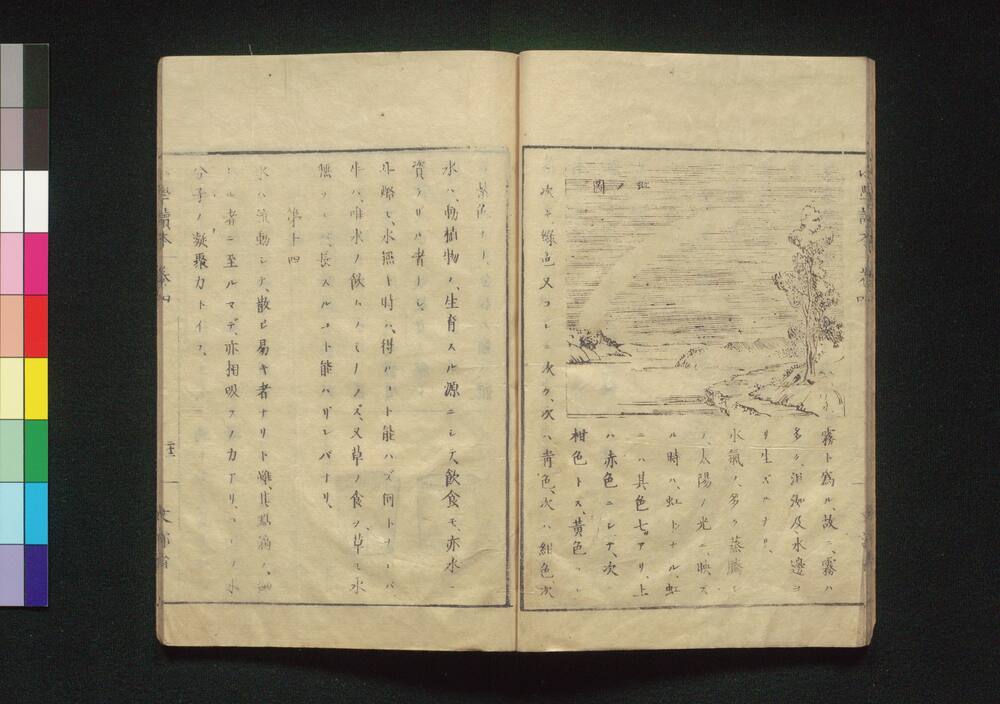 虹ノ圖
霧ト爲ル、故ニ、霧ハ
多ク、湖泖及水邊ヨ
リ生ズルナリ、
水氣ノ、多ク蒸騰シ
テ、太陽ノ光ニ、映ズ
ル時ハ、虹トナル、虹
ニハ其色七ツアリ、上
ハ赤色ニシテ、次ハ
柑色トス、黄色
次ギ、綠色又コレニ次グ、次ハ靑色、次ハ紺色、次
紫色ナリ、
水ハ、動植物ノ、生育スル源ニシテ、飮食モ、亦水ニ
資ラザル者ナシ、
牛酪モ、水無キ時ハ、得ルコト能ハズ、何トナレバ
牛ハ、唯水ノ飮ムノミナラズ、又草ノ食フ、草モ水
無ケレバ、長ズルコト能ハザレバナリ、
第十四
水ハ流動シテ、散ビ易キ者ナリト雖、其點滴ノ、
ナル者ニ至ルマデ、亦相吸フノ力アリ、コレノ水
分子ノ凝聚力トイフ、
小學讀本 卷四
文部省